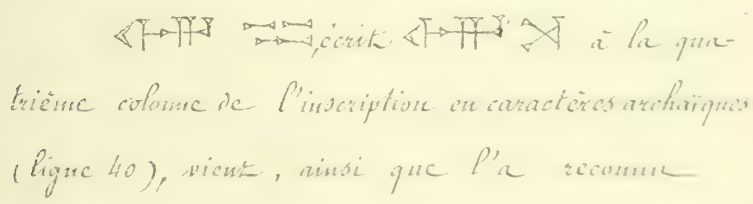 écrit à la qua-
trième colonne de l'inscription en caractères archaïques
(ligne 40), vient, ainsi que l'a reconnu